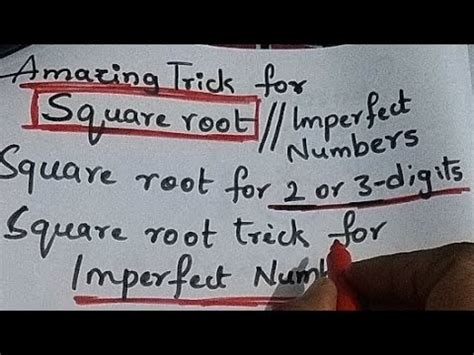 Amazing Trick for
Square root // Imperfect
Numbers
Square root for 2 or 3-digits
Square root trick for
Imperfect Numb